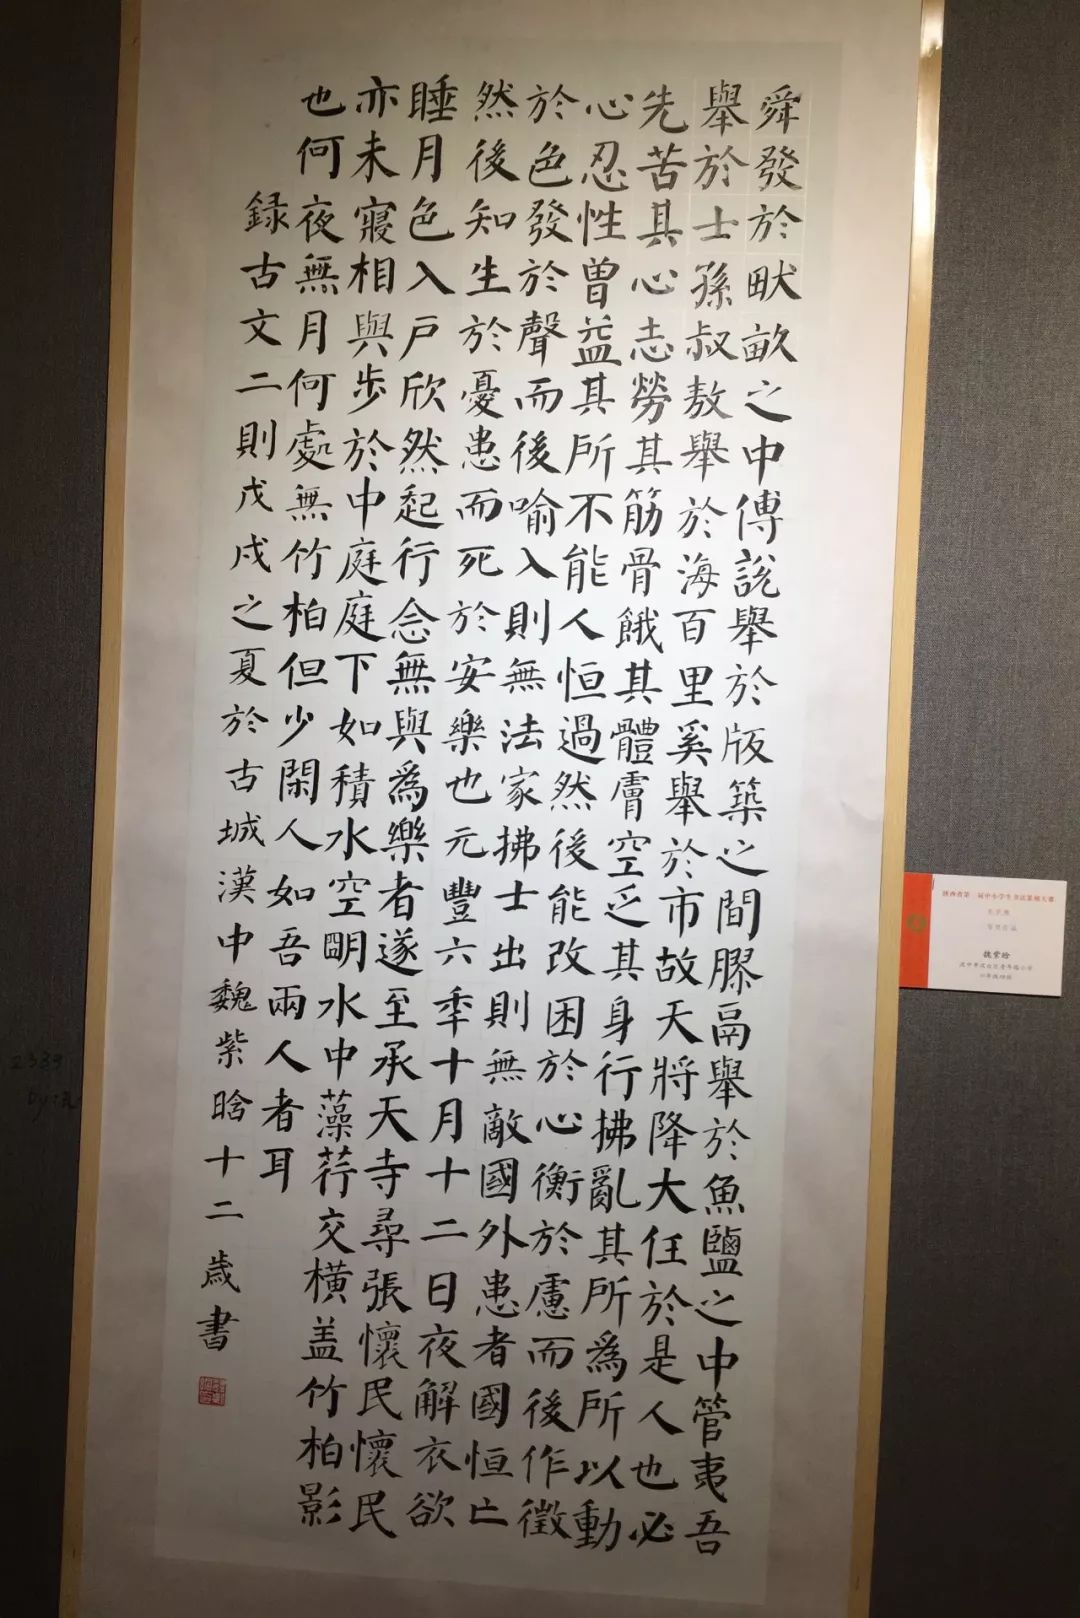 舜發於畎畝之中傅說舉於版築之間膠鬲舉於魚鹽之中管夷吾
舉於士孫叔敖舉於海百里奚舉於市故天將降大任於是人也必
先苦其心志勞其筋骨餓其體膚空乏其身行拂亂其所為所以動
心忍性曾益其所不能人恒過然後能改困於心衡於慮而後作徵
於色發於聲而後喻入則無法家拂士出則無敵國外患者國恒亡
然後知生於憂患而死於安樂也元豐六秊十月十二日夜解衣欲
睡月色入戶欣然起行念無與為樂者遂至承天寺尋張懷民懷民
亦未寢相與步於中庭庭下如積水空明水中藻荇交橫盖竹柏影
也何夜無月何處無竹柏但少閑人如吾兩人者耳
録古文二則戊戌之夏於古城漢中魏紫晗十二歲書
魏紫晗